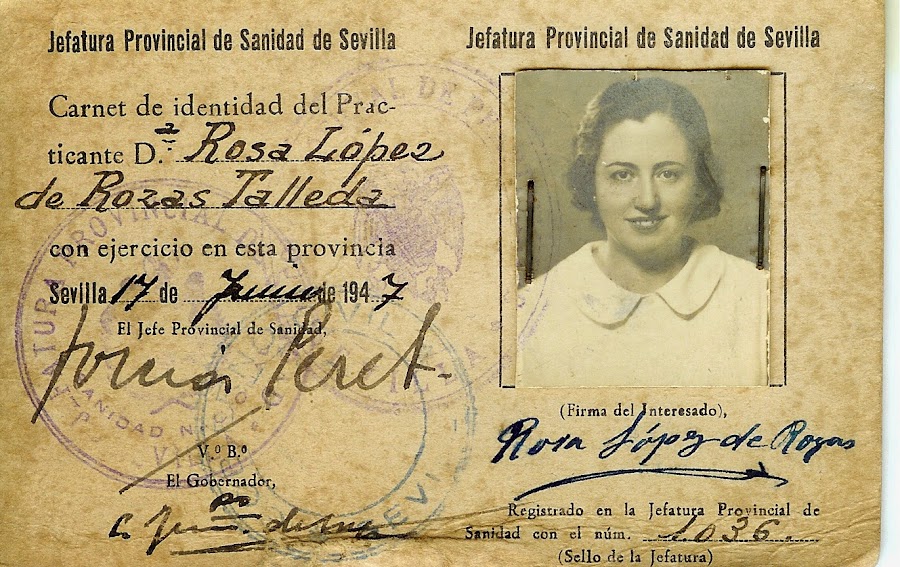 Jefatura Provincial de Sanidad de Sevilla
Carnet de identidad del Prac-
ticante D.ª Rosa López
de Rozas Talleda
con ejercicio en esta provincia
Sevilla 17 de Junio de 1947
El Jefe Provincial de Sanidad,
V.º B.º
El Gobernador,
Jefatura Provincial de Sanidad de Sevilla
(Firma del Interesado),
Rosa López de Rozas
Registrado en la Jefatura Provincial de
Sanidad con el núm. 1.036.
(Sello de la Jefatura)